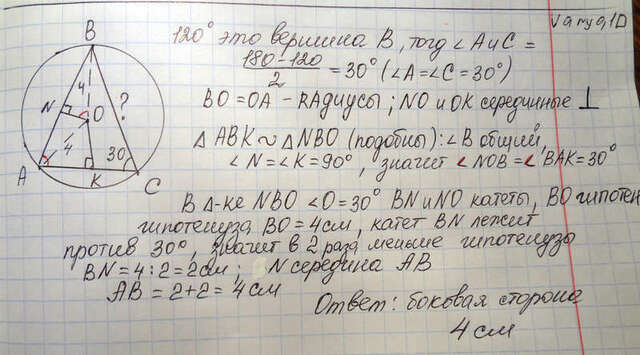 Varyg,1D
120° это вершина В, тогд ∠АиС =
180-120
2
= 30° (∠A=∠C=30°)
BO=OA - RAдиусы; NO и OK серединные ⊥
△ABK ~ △NBO (подобны): ∠B общий,
∠N=∠K=90°, значит ∠NOB=∠BAK=30°
В △-ке NBO ∠O=30° BN и NO катеты, BO гипотен
гипотенуза BO=4см, катет BN лежит
против 30°, значит в 2 раза меньше гипотенузы
BN=4:2=2см; N середина AB
AB=2+2=4см
Ответ: боковая сторона
4 см
B
4
N
O
?
4
30
A
K
C